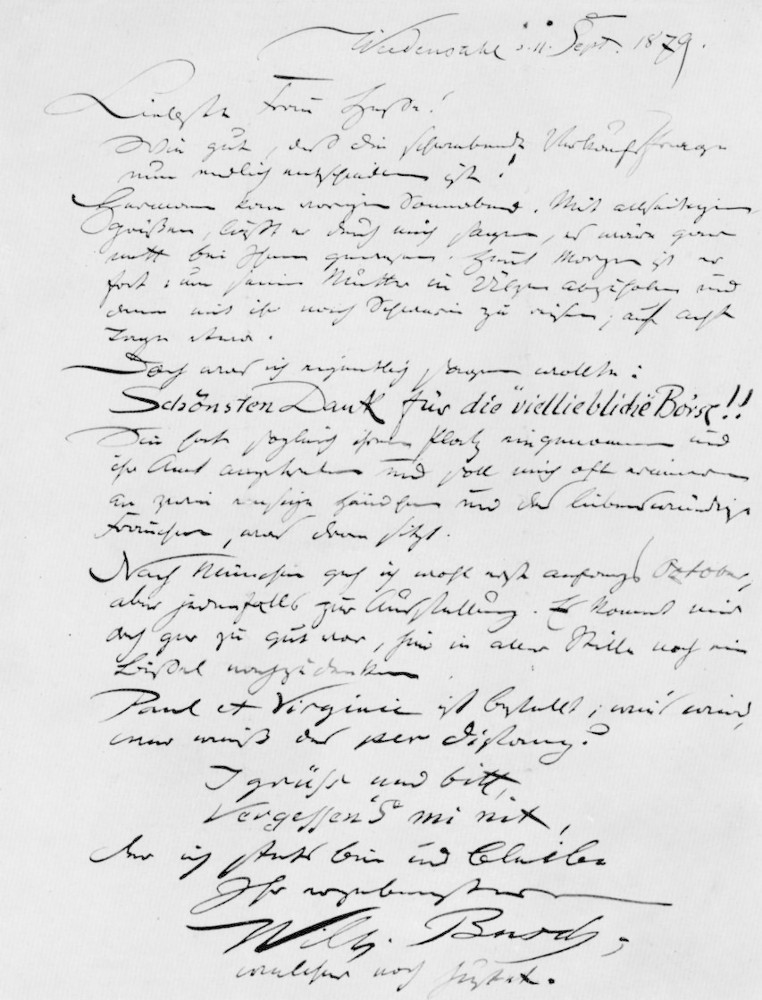 Wiedensahl d. 11. Sept. 1879.
Liebste Frau Hesse!
Wie gut, daß die schwebende Verkaufsfrage
nun endlich entschieden ist!
Hermann kam vorigen Sonnabend. Mit allseitigen
Grüßen, läßt er durch mich sagen, es wäre ganz
nett bei Ihnen gewesen. Heut Morgen ist er
fort, um seine Mutter in abzuholen und
dann mit ihr nach zu reisen; auf acht
Tage etwa.
Doch was ich eigentlich sagen wollte:
Schönsten Dank für die "vielliebliche" Börse!!
Sie hat sogleich ihren Platz eingenommen und
ihr Amt angetreten und soll mich oft erinnern
an zwei Händchen und das liebenswürdige
Frauchen, was dran sitzt.
Nach München geh ich wohl erst anfangs October,
aber jedenfalls zur Ausstellung. Es kommt mir
das gar zu gut vor, hier in aller Stille noch ein
Bissel nachzudenken.
Paul et Virginie ist bestellt; wie's wird,
wer weiß das per distance?
I grüße und bitt,
Vergessen's mi nit,
der ich stets bin und bleibe
Ihr ergebenster
Wilh. Busch,
welcher noch hustet.